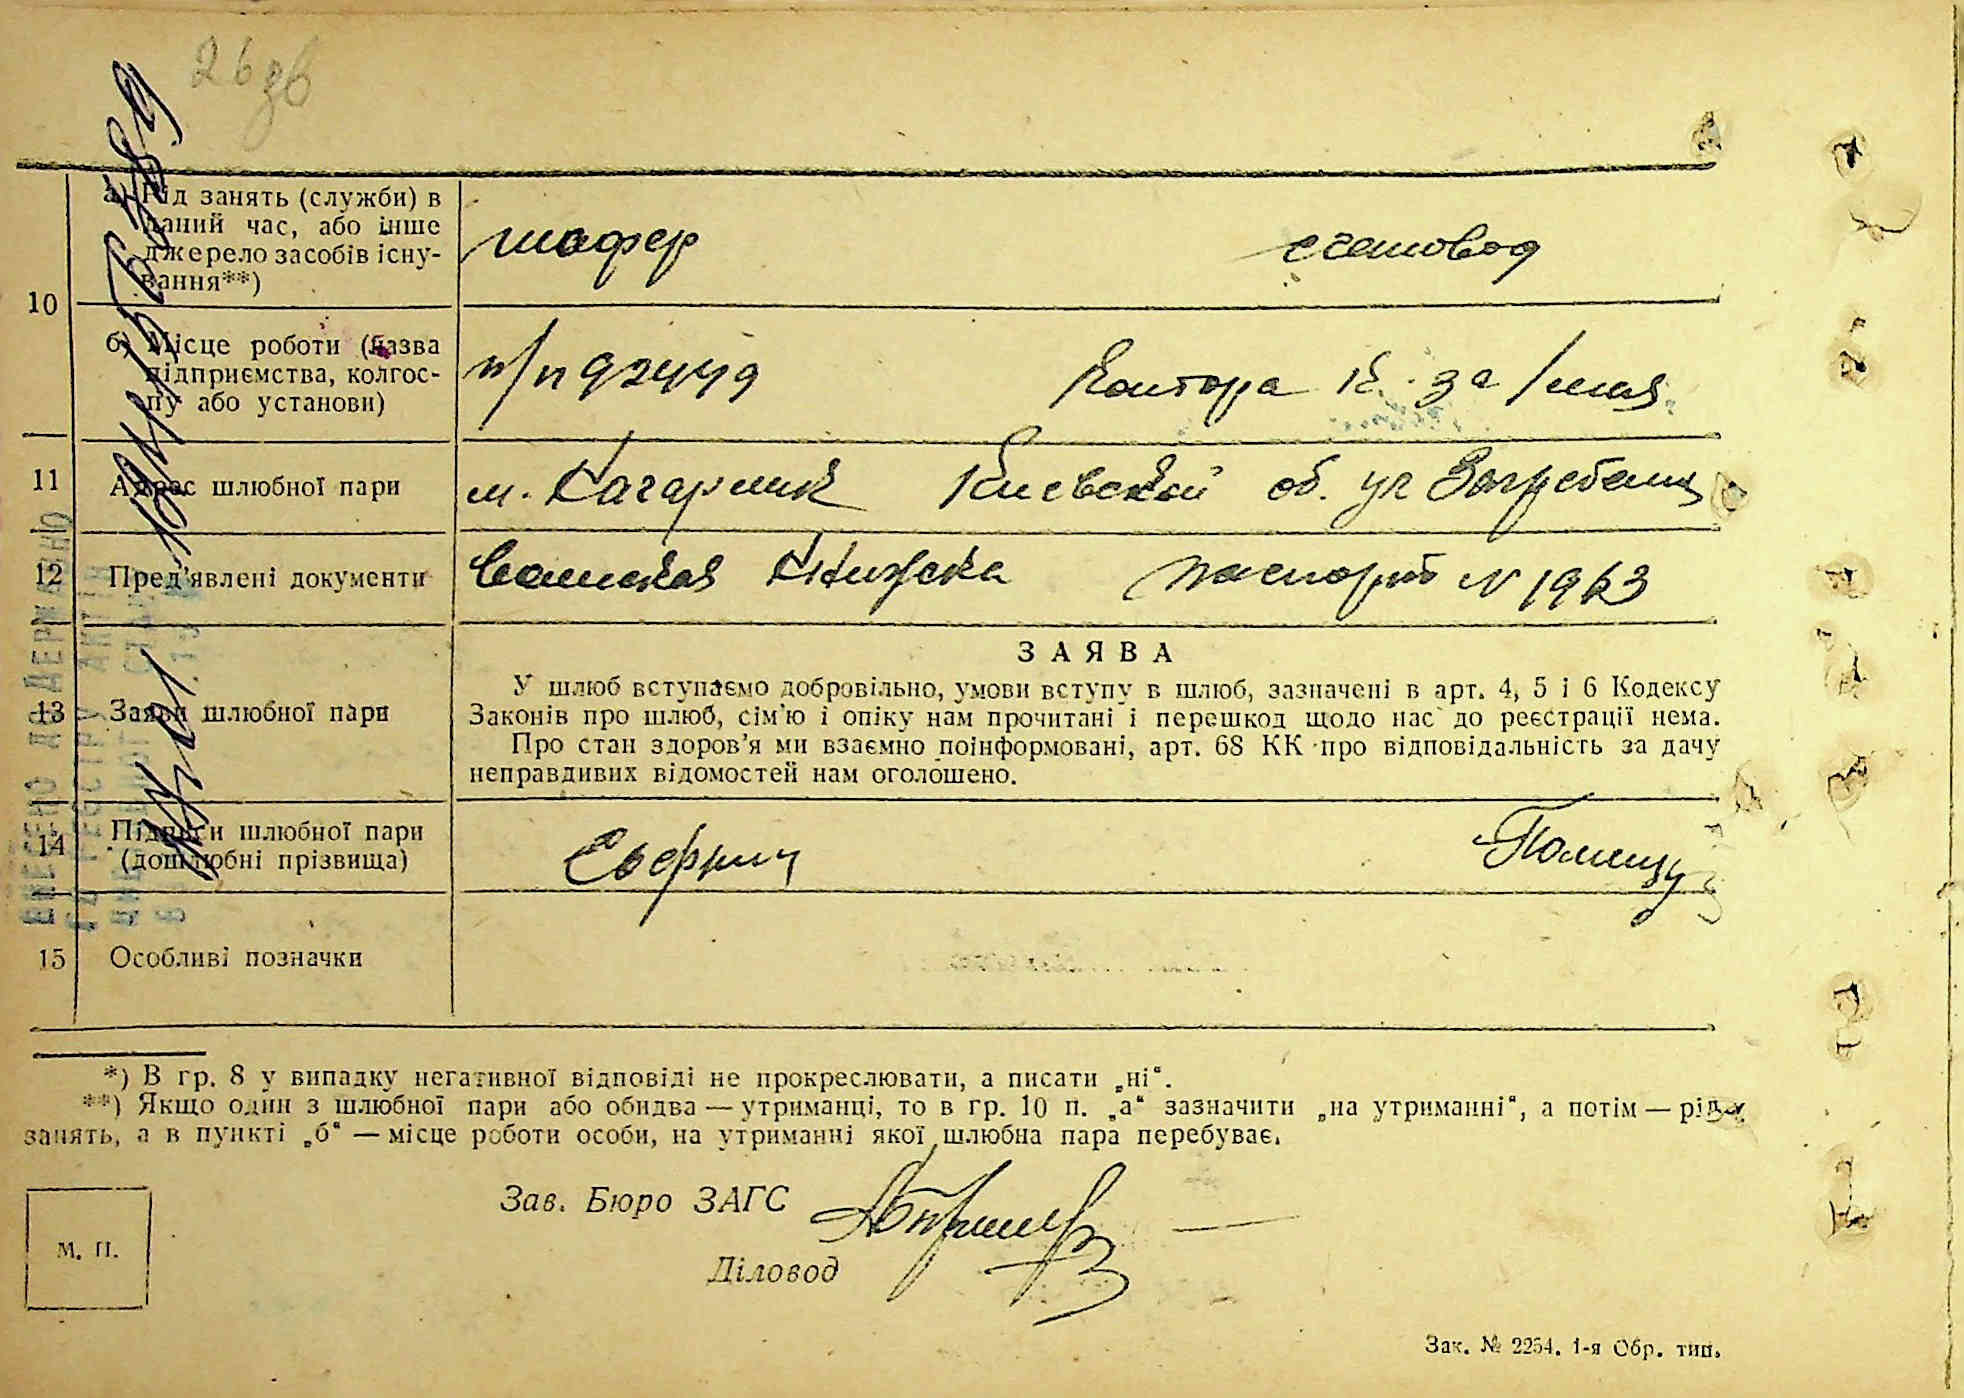 26 зв
10
а) Рід занять (служби) в
даний час, або інше
джерело засобів існу-
вання**)
шофер счетовод
б) Місце роботи (назва
підприємства, колгос-
пу або установи)
п/п 92449 Контора
11 Адрес шлюбної пари
м. Кагарлик Киевской об. ул
12 Пред'явлені документи
Солдатская Книжска паспорт N 1963
13 Заява шлюбної пари
ЗАЯВА
У шлюб вступаємо добровільно, умови вступу в шлюб, зазначені в арт. 4, 5 і 6 Кодексу
Законів про шлюб, сім'ю і опіку нам прочитані і перешкод щодо нас до реєстрації нема.
Про стан здоров'я ми взаємно поінформовані, арт. 68 КК про відповідальність за дачу
неправдивих відомостей нам оголошено.
14 Підписи шлюбної пари
(дошлюбні прізвища)
15 Особливі позначки
*) В гр. 8 у випадку негативної відповіді не прокреслювати, а писати „ні“.
**) Якщо один з шлюбної пари або обидва — утриманці, то в гр. 10 п. „а“ зазначити „на утриманні“, а потім — рід
занять, а в пункті „б“ — місце роботи особи, на утриманні якої шлюбна пара перебуває.
Зав. Бюро ЗАГС
Діловод
М. П.
Зак. № 2254. 1-я Обр. тип.